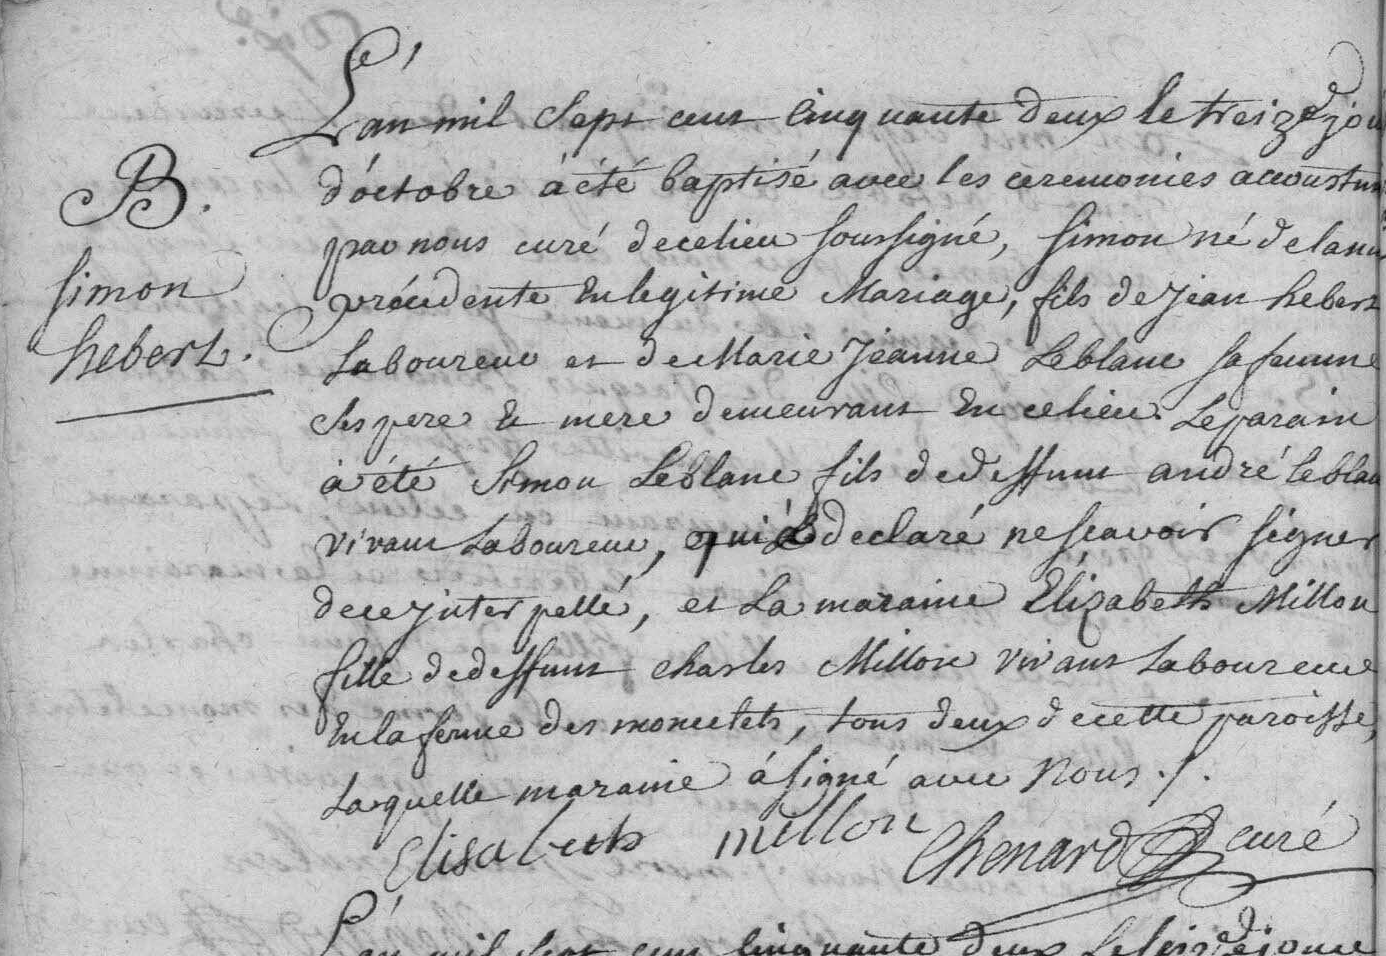 B.
Simon
hebert.
L'an mil Sept cent Cinquante deux le treize jou
d'octobre à été baptisé avec les ceremonies accoustum
par nous curé de ce lieu soussigné, Simon né de la nui
précedente En legitime Mariage, fils de Jean hebert
Laboureur et de Marie Jeanne Leblanc sa femme
Ses pere Et mere demeurant En ce lieu. Le parain
à été Simon Leblanc fils de deffunt andré leblan
vivant Laboureur, qui à declaré ne sçavoir signer
de ce jnterpellé, et La maraine Elizabeth Millon
fille de deffunt charles Millon vivant Laboureur
En la ferme des moncelets, tous deux de cette paroisse,
Laquelle maraine à signé avec Nous ./.
Elisabeth millon
Chenard curé
L'an mil Sept cent Cinquante deux Le seize jour